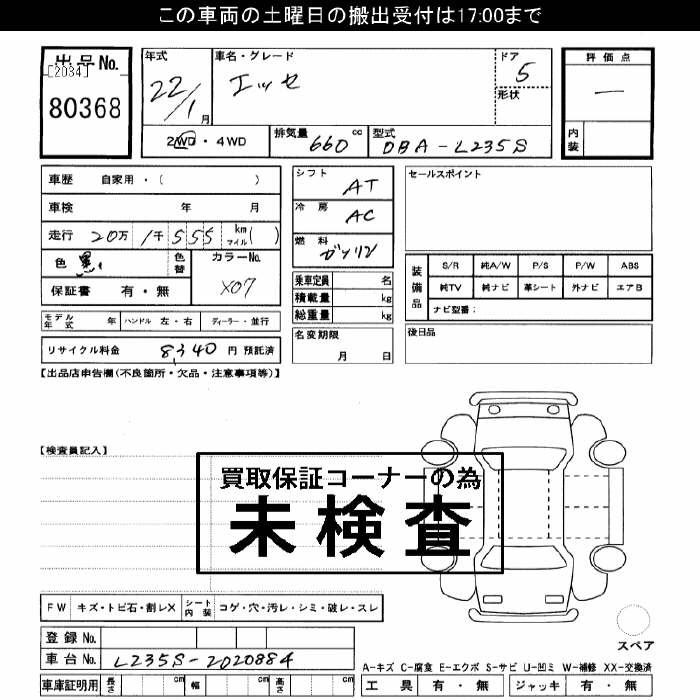 この車両の土曜日の搬出受付は17:00まで
出品No.
[2034]
80368
年式
22/1月
車名・グレード
エッセ
ドア
5
形状
評価点
—
内装
2WD・4WD
排気量 660 cc
型式 DBA-L235S
車歴 自家用・( )
車検 年 月
走行 20万1千555 km マイル( )
色 黒
色替
カラーNo.
X07
保証書 有・無
シフト AT
冷房 AC
燃料 ガソリン
乗車定員 名
積載量 kg
総重量 kg
名変期限
月 日
セールスポイント
装備品
S/R 純A/W P/S P/W ABS
純TV 純ナビ 革シート 外ナビ エアB
ナビ型番:
後日品
モデル年式 年 ハンドル 左・右 ディーラー・並行
リサイクル料金 8,340 円 預託済
【出品店申告欄(不良箇所・欠品・注意事項等)】
【検査員記入】
買取保証コーナーの為
未検査
FW キズ・トビ石・割レX シート内装 コゲ・穴・汚レ・シミ・破レ・スレ
登録No.
車台No. L235S-2020884
車庫証明用 長さ cm 幅 cm 高さ cm
スペア
A-キズ C-腐食 E-エクボ S-サビ U-凹ミ W-補修 XX-交換済
工具 有・無 ジャッキ 有・無